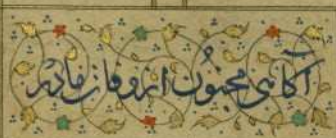 آگاهی مجنون از وفات مادر